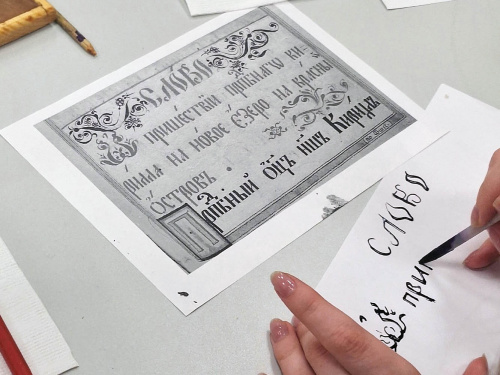 СЛО́ВО
пришествїи прпбнаго ки=
рилла на но́вое Е́зеро на красны
О́СТРОВЪ .
Прпбный ѻц҃ъ нш҃ъ Кирилъ
СЛОВО
при